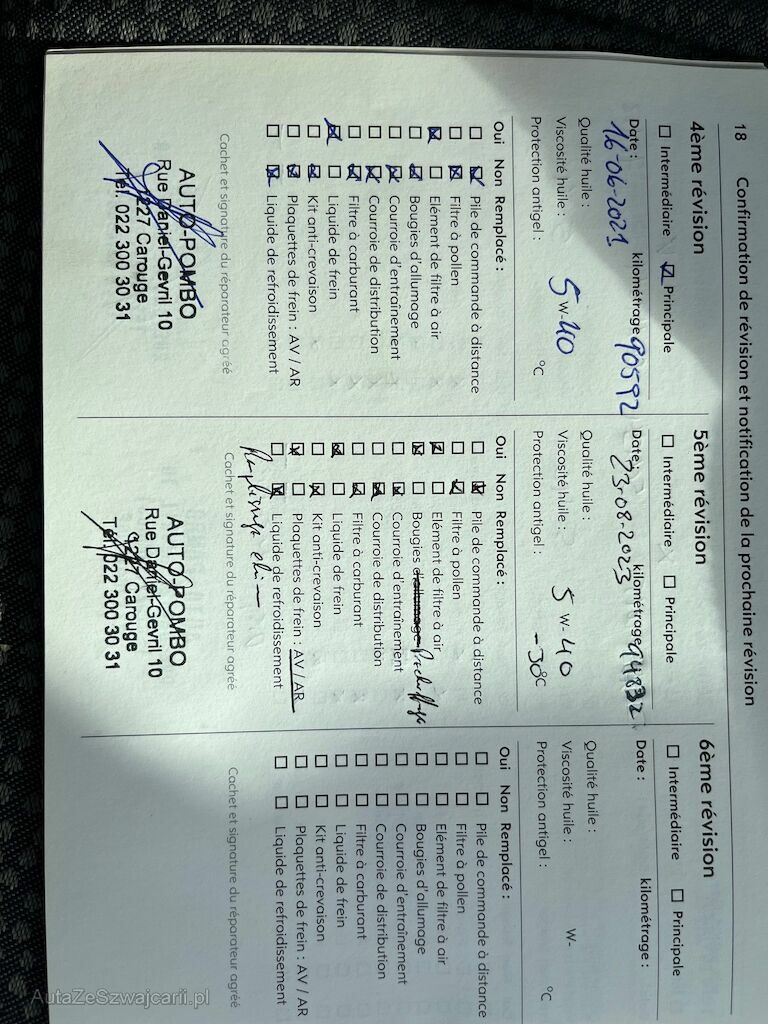 18 Confirmation de révision et notification de la prochaine révision
4ème révision
Intermédiaire Principale
Date : kilométrage
16-06-2021 90592
Qualité huile :
Viscosité huile : 5 W- 40
Protection antigel : °C
Oui Non Remplacé :
Pile de commande à distance
Filtre à pollen
Elément de filtre à air
Bougies d'allumage
Courroie d'entraînement
Courroie de distribution
Filtre à carburant
Liquide de frein
Kit anti-crevaison
Plaquettes de frein : AV / AR
Liquide de refroidissement
Cachet et signature du réparateur agréé
AUTO-POMBO
Rue Daniel-Gevril 10
1227 Carouge
Tél. 022 300 30 31
5ème révision
Intermédiaire Principale
Date : kilométrage
23-08-2023 94832
Qualité huile :
Viscosité huile : 5 W- 40
Protection antigel : -30°C
Oui Non Remplacé :
Pile de commande à distance
Filtre à pollen
Elément de filtre à air
Bougies d'allumage
Courroie d'entraînement
Courroie de distribution
Filtre à carburant
Liquide de frein
Kit anti-crevaison
Plaquettes de frein : AV / AR
Liquide de refroidissement
Cachet et signature du réparateur agréé
AUTO-POMBO
Rue Daniel-Gevril 10
1227 Carouge
Tél. 022 300 30 31
6ème révision
Intermédiaire Principale
Date : kilométrage :
Qualité huile :
Viscosité huile : W-
Protection antigel : °C
Oui Non Remplacé :
Pile de commande à distance
Filtre à pollen
Elément de filtre à air
Bougies d'allumage
Courroie d'entraînement
Courroie de distribution
Filtre à carburant
Liquide de frein
Kit anti-crevaison
Plaquettes de frein : AV / AR
Liquide de refroidissement
Cachet et signature du réparateur agréé
AutaZeSzwajcarii.pl